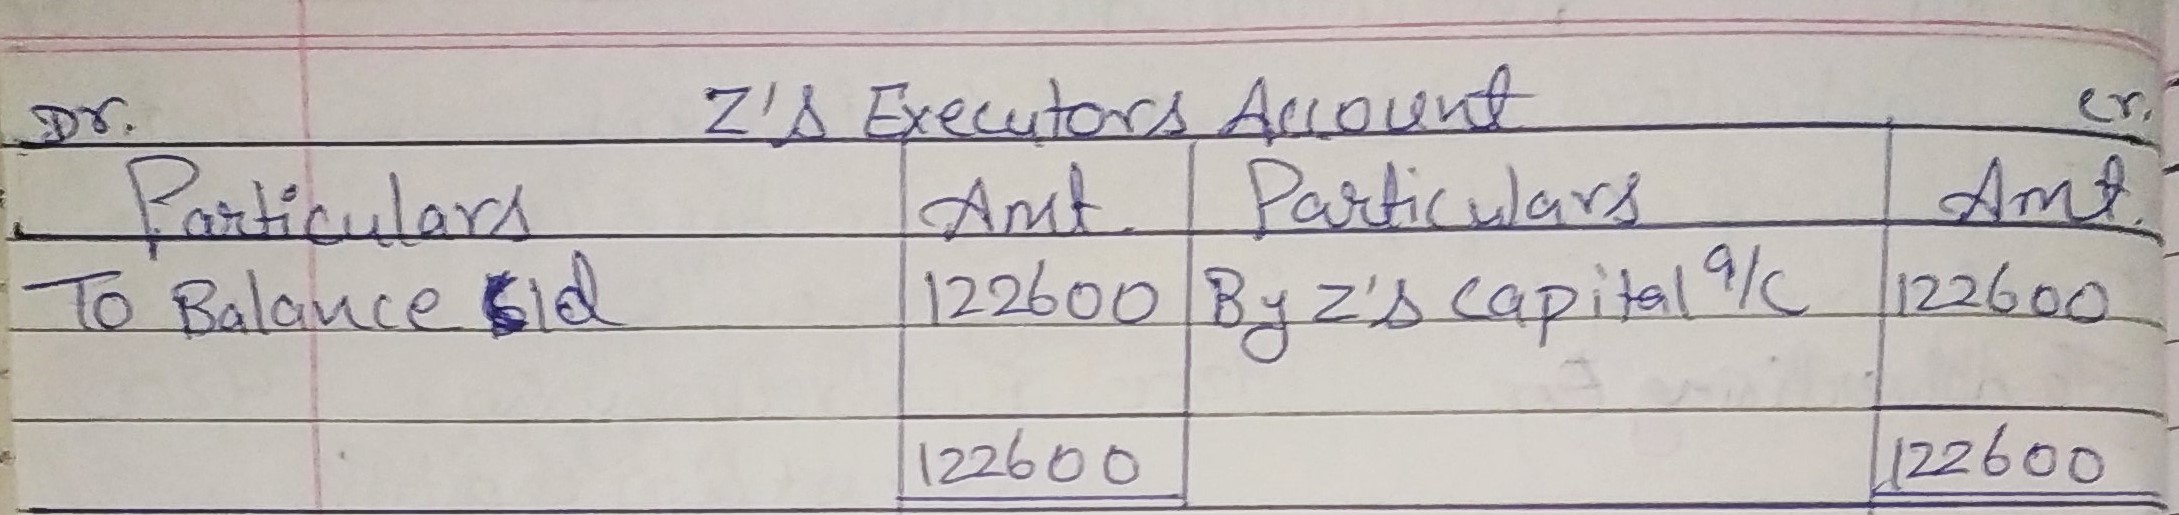 Dr. Z's Executors Account Cr.
Particulars Amt. Particulars Amt.
To Balance c/d 122600 By Z's capital a/c 122600
122600 122600